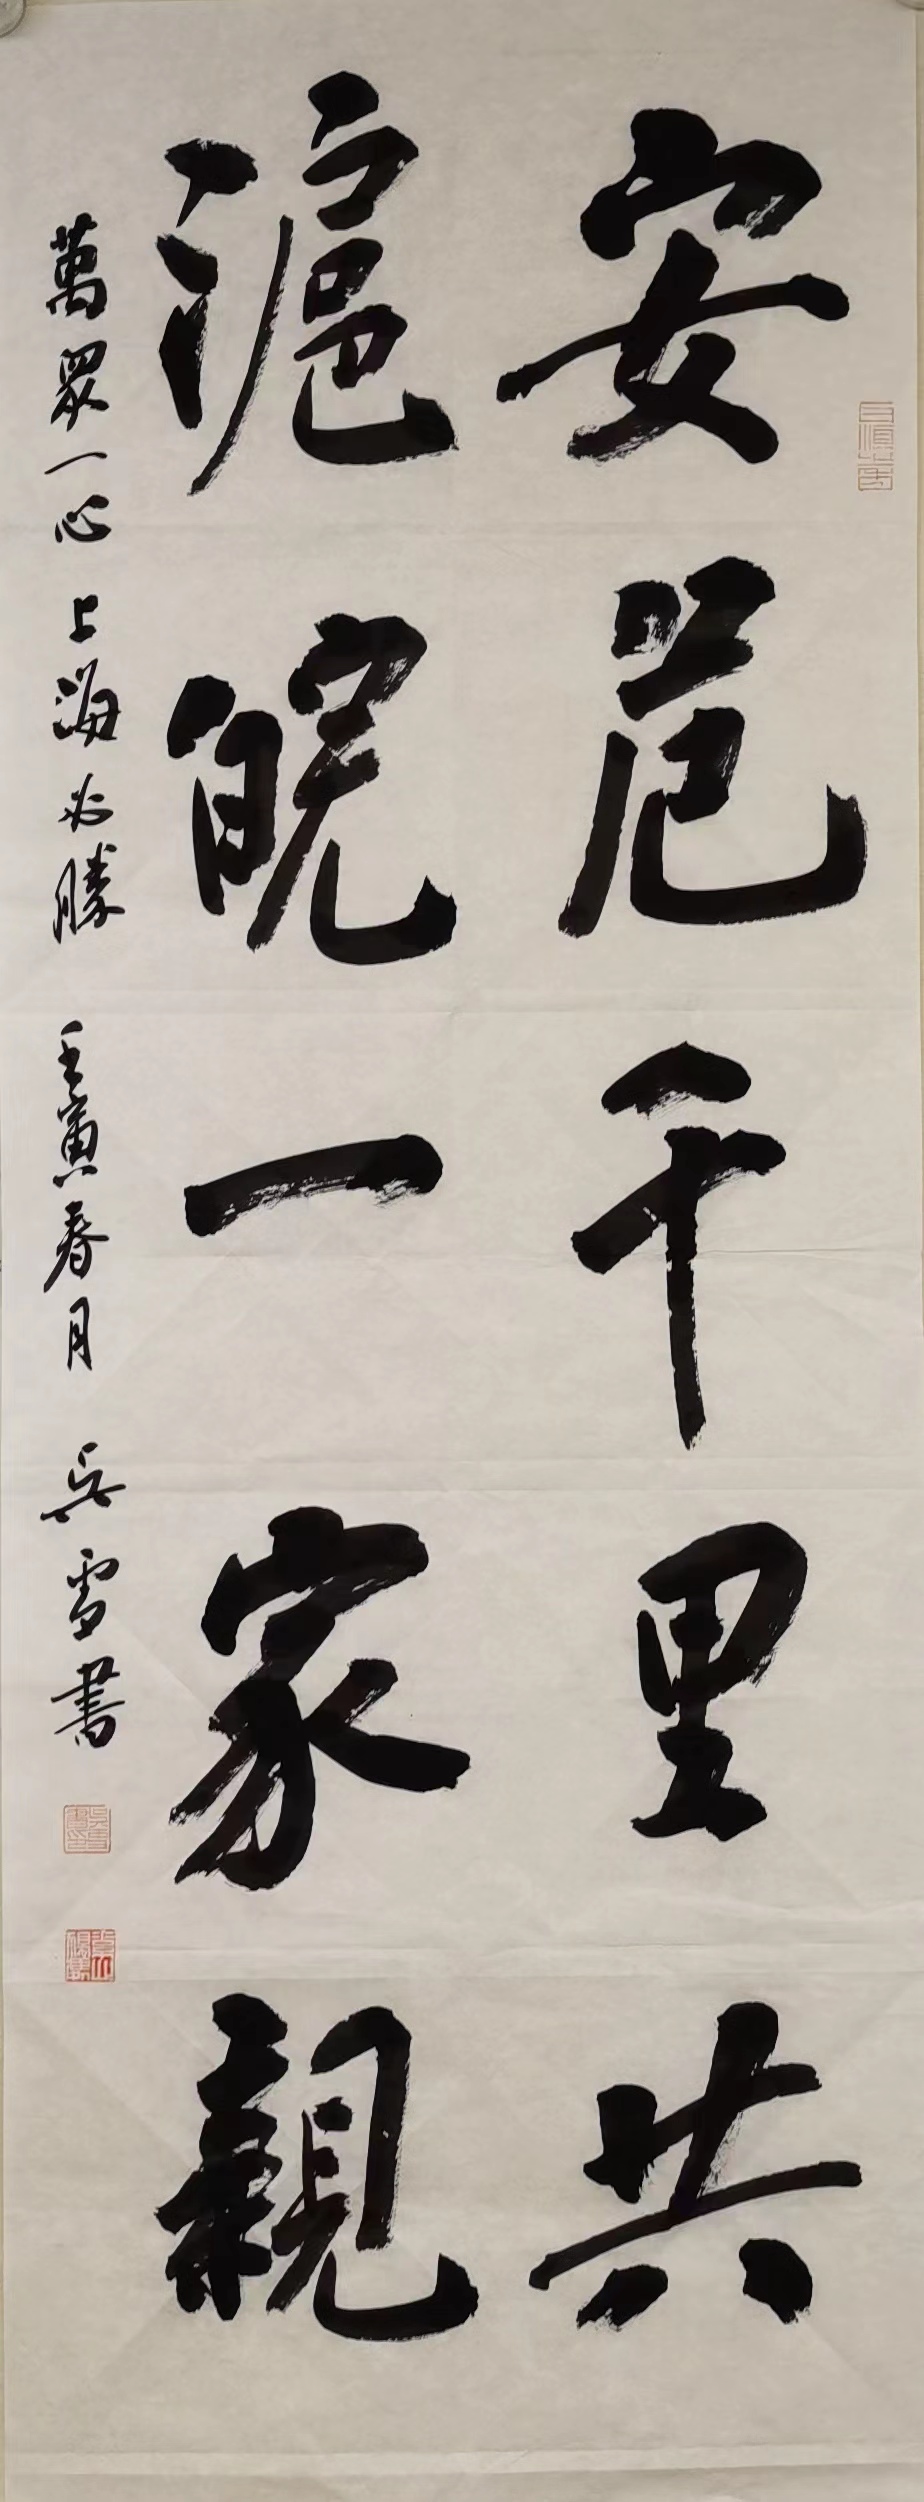 安危千里共
滬皖一家親
萬眾一心上海必勝 壬寅春月 吳雪書